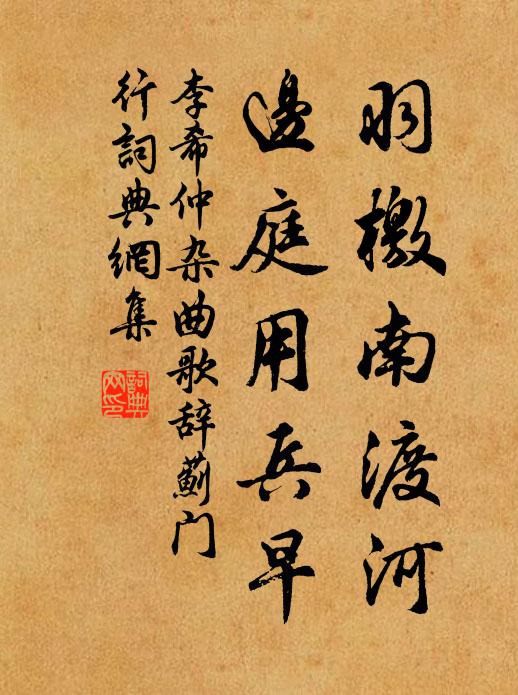 羽檄南渡河
邊庭用兵早
李希仲杂曲歌辞薊门
行詞典網集
詞典網印